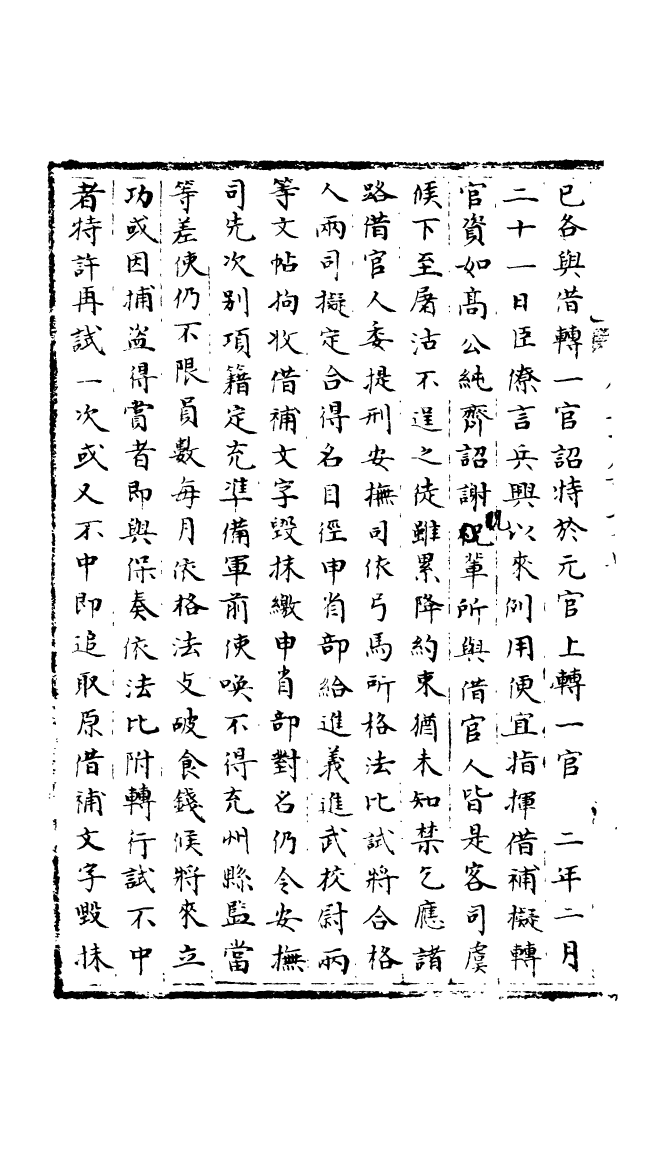 已各與借轉一官詔特於元官上轉一官　二年二月
二十一日臣僚言兵興以來例用便宜指揮借補擬轉
官資如高公純齊詔謝貺輩所與借官人皆是客司虞
候下至屠沽不逞之徒雖累降約束猶未知禁乞應諸
路借官人委提刑安撫司依弓馬所格法比試將合格
人兩司擬定合得名目徑申省部給進義進武校尉兩
等文帖拘收借補文字毀抹繳申省部對名仍令安撫
司先次別項籍定充準備軍前使喚不得充州縣監當
等差使仍不限員數每月依格法攴破食錢候將來立
功或因捕盜得賞者即與保奏依法比附轉行試不中
者特許再試一次或又不中即追取原借補文字毀抹